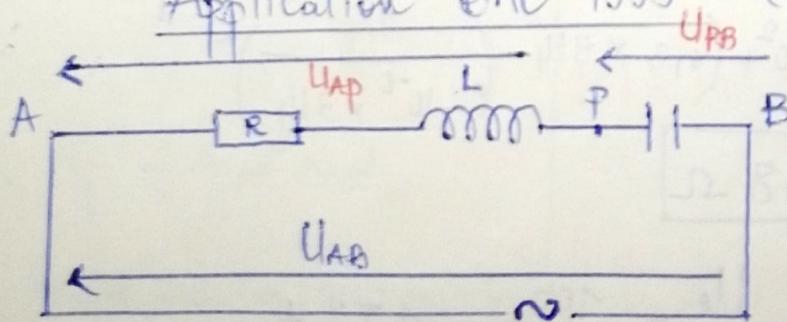 Application
U_PB
U_AP
L
A
R
P
B
U_AB
~
Ω